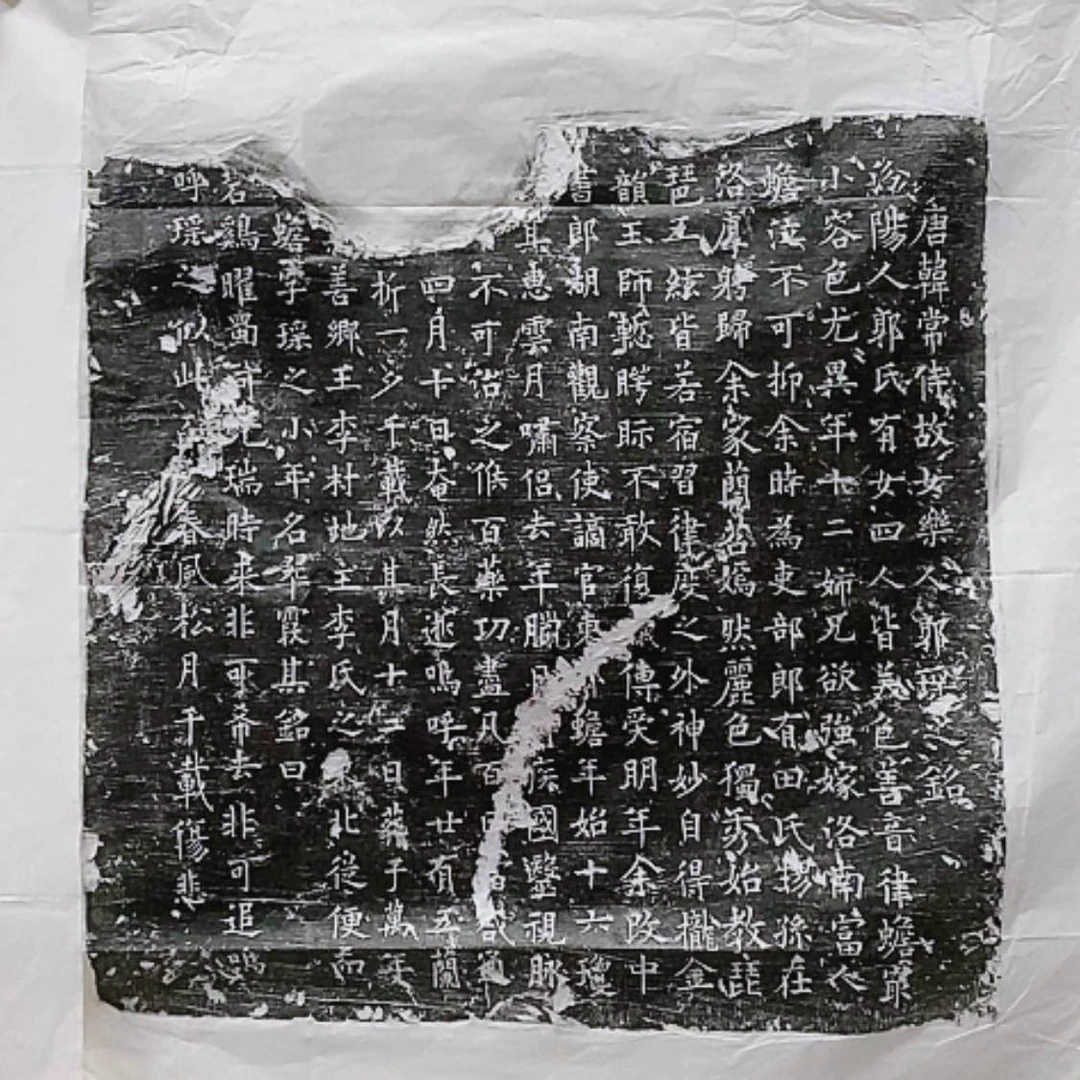 唐韓常侍故女樂人郭瑤之銘
汾陽人郭氏有女四人皆美色善音律蟾最
小容色尤異年十二姉兄欲強嫁洛南富人
蟾泣不可抑余時為吏部郎有田氏揚孫在
洛虔聘歸余家蘭若嫣然麗色獨秀始教琵
琶五絃皆若宿習律度之外神妙自得攏金
韻玉師輒睊眎不敢復傳受明年余改中
書郎湖南觀察使謫官東 蟾年始十六瓊
其惠雲月嘯侶去年臘月 疾國毉視脉
不可治之候百藥功盡凡百日
四月十日奄然長逝嗚呼年廿有五蘭
折一夕千載以其月十三日葬于萬年
善鄉王李村地主李氏之 北從便而
蟾李瑤之小年名翠霞其銘曰
若鷄曜蜀 瑞時来非可希去非可追嗚
呼瑤之似此 春風松月千載傷悲